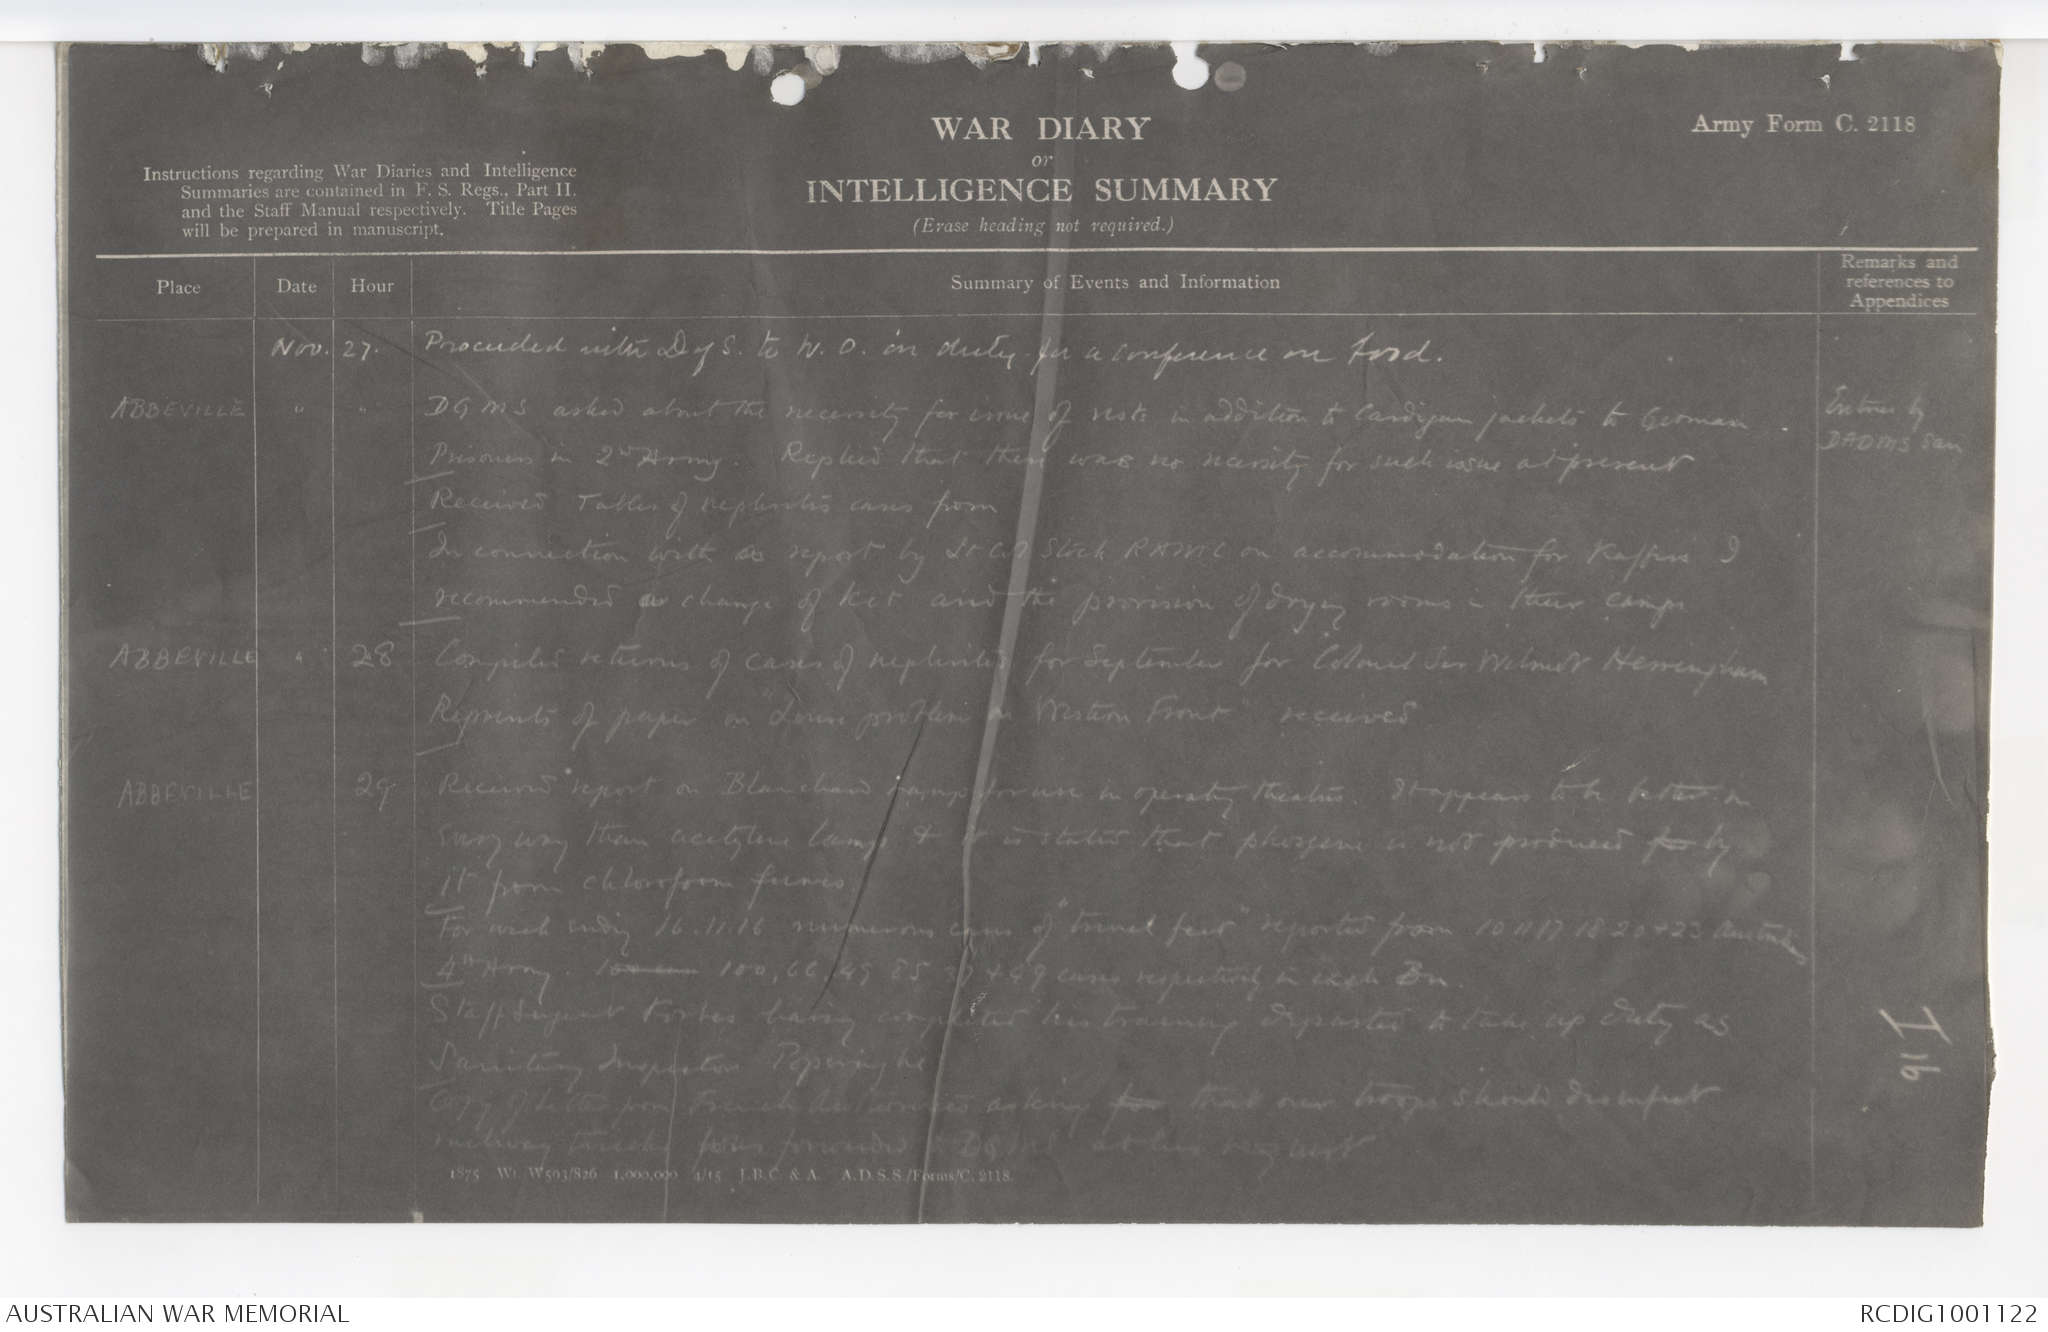 WAR DIARY
or
INTELLIGENCE SUMMARY
(Erase heading not required.)
Army Form C. 2118
Instructions regarding War Diaries and Intelligence
Summaries are contained in F. S. Regs., Part II.
and the Staff Manual respectively. Title Pages
will be prepared in manuscript.
Place Date Hour Summary of Events and Information Remarks and
references to
Appendices
Nov. 27. Proceeded with D of S. to W. O. on duty for a conference on food.
ABBEVILLE " " DGMS asked about the necessity for issue of vests in addition to Cardigan jackets to German Entries by
Prisoners in 2nd Army. Replied that there was no necessity for such issue at present DADMS San
Received Tables of nephritis cases from
In connection with a report by Lt Stock RAMC on accommodation for Kaffirs I
recommended a change of kit and the provision of drying rooms in their camps
ABBEVILLE " 28 Compiled returns of cases of nephritis for September for Colonel Sir Wilmot Herringham
Reprints of paper on "Louse problem in Western Front" received
ABBEVILLE 29 Received report on Blanchard lamp for use in operating theatres. It appears to be better in
every way than acetylene lamps & it is stated that phosgene is not produced by
it from chloroform fumes
For week ending 16.11.16 numerous cases of "trench feet" reported from 10 11 17 18 20 + 23
4th Army. 100, 66, 49 85 37 + 49 cases respectively in each Bn.
Staff Sergeant Forbes having completed his training departed to take up duty as
Sanitary Inspector Poperinghe
Copy of letter from French authorities asking that our troops should disinfect
railway trucks forwarded to DGMS at his request
I
16
1875 Wt. W593/826 1,000,000 4/15 J.B.C. & A. A.D.S.S./Forms/C. 2118.
AUSTRALIAN WAR MEMORIAL
RCDIG1001122